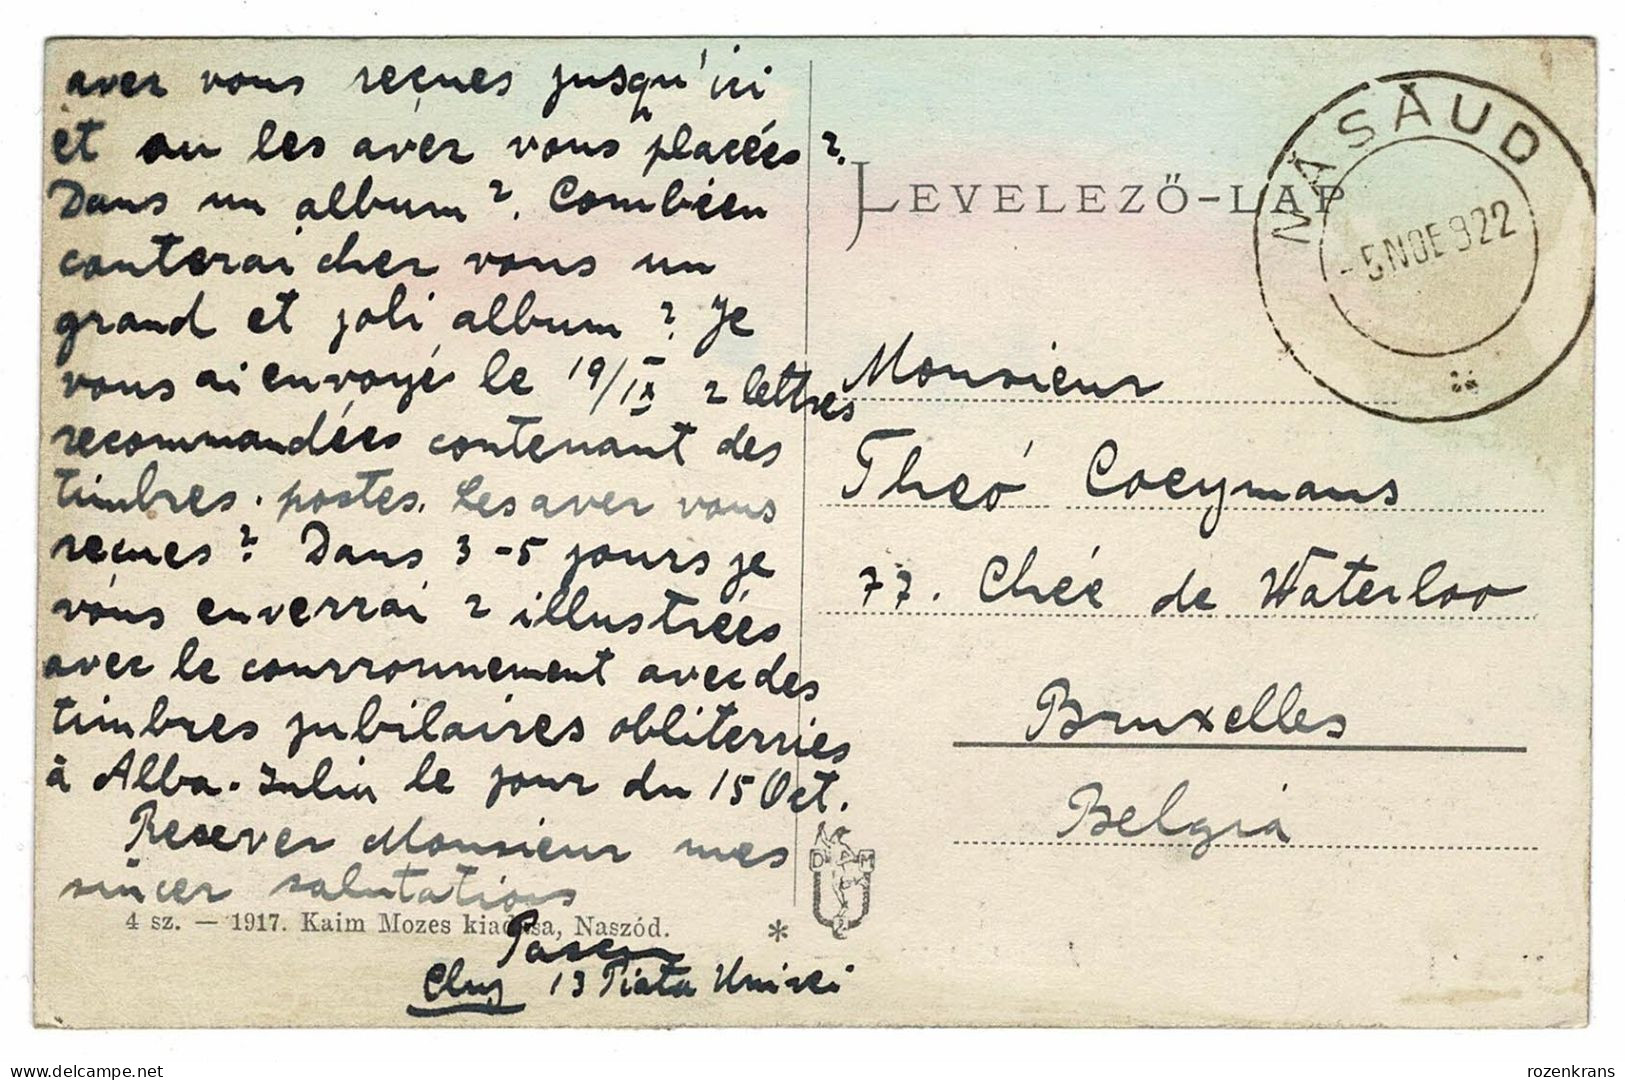 aver vous reçues jusqu'ici
et ou les aver vous placées?
Dans un album? Combien
couterai cher vous un
grand et joli album? Je
vous ai envoyé le 19/IX 2 lettres
recommandées contenant des
timbres-postes. Les aver vous
reçues? Dans 3-5 jours je
vous enverrai 2 illustrées
avec le courronnement avec des
timbres jubilaires obliterries
à Alba-Iulia le jour du 15 Oct.
Recever Monsieur mes
sincer salutations
4 sz. — 1917. Kaim Mozes kiadása, Naszód.
Cluj 13 Piata Unirei
LEVELEZŐ-LAP
NĂSĂUD
-5 NOE 922
Monsieur
Theó Coeymans
77. Chée de Waterloo
Bruxelles
Belgia
D M
delcampe.net
rozenkrans